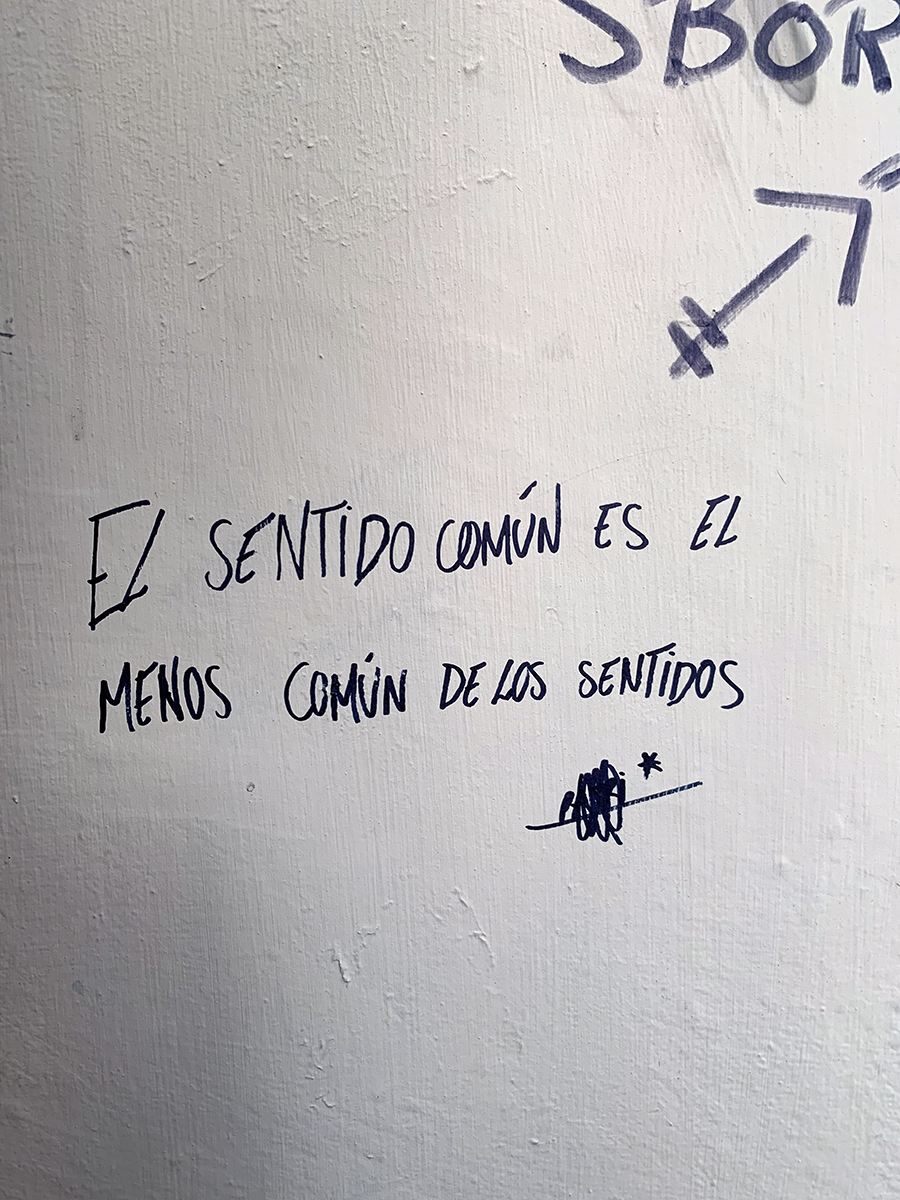 SBOR
El SENTiDO COMÚN ES EL
MENOS COMÚN DE LOS SENTiDOS
*